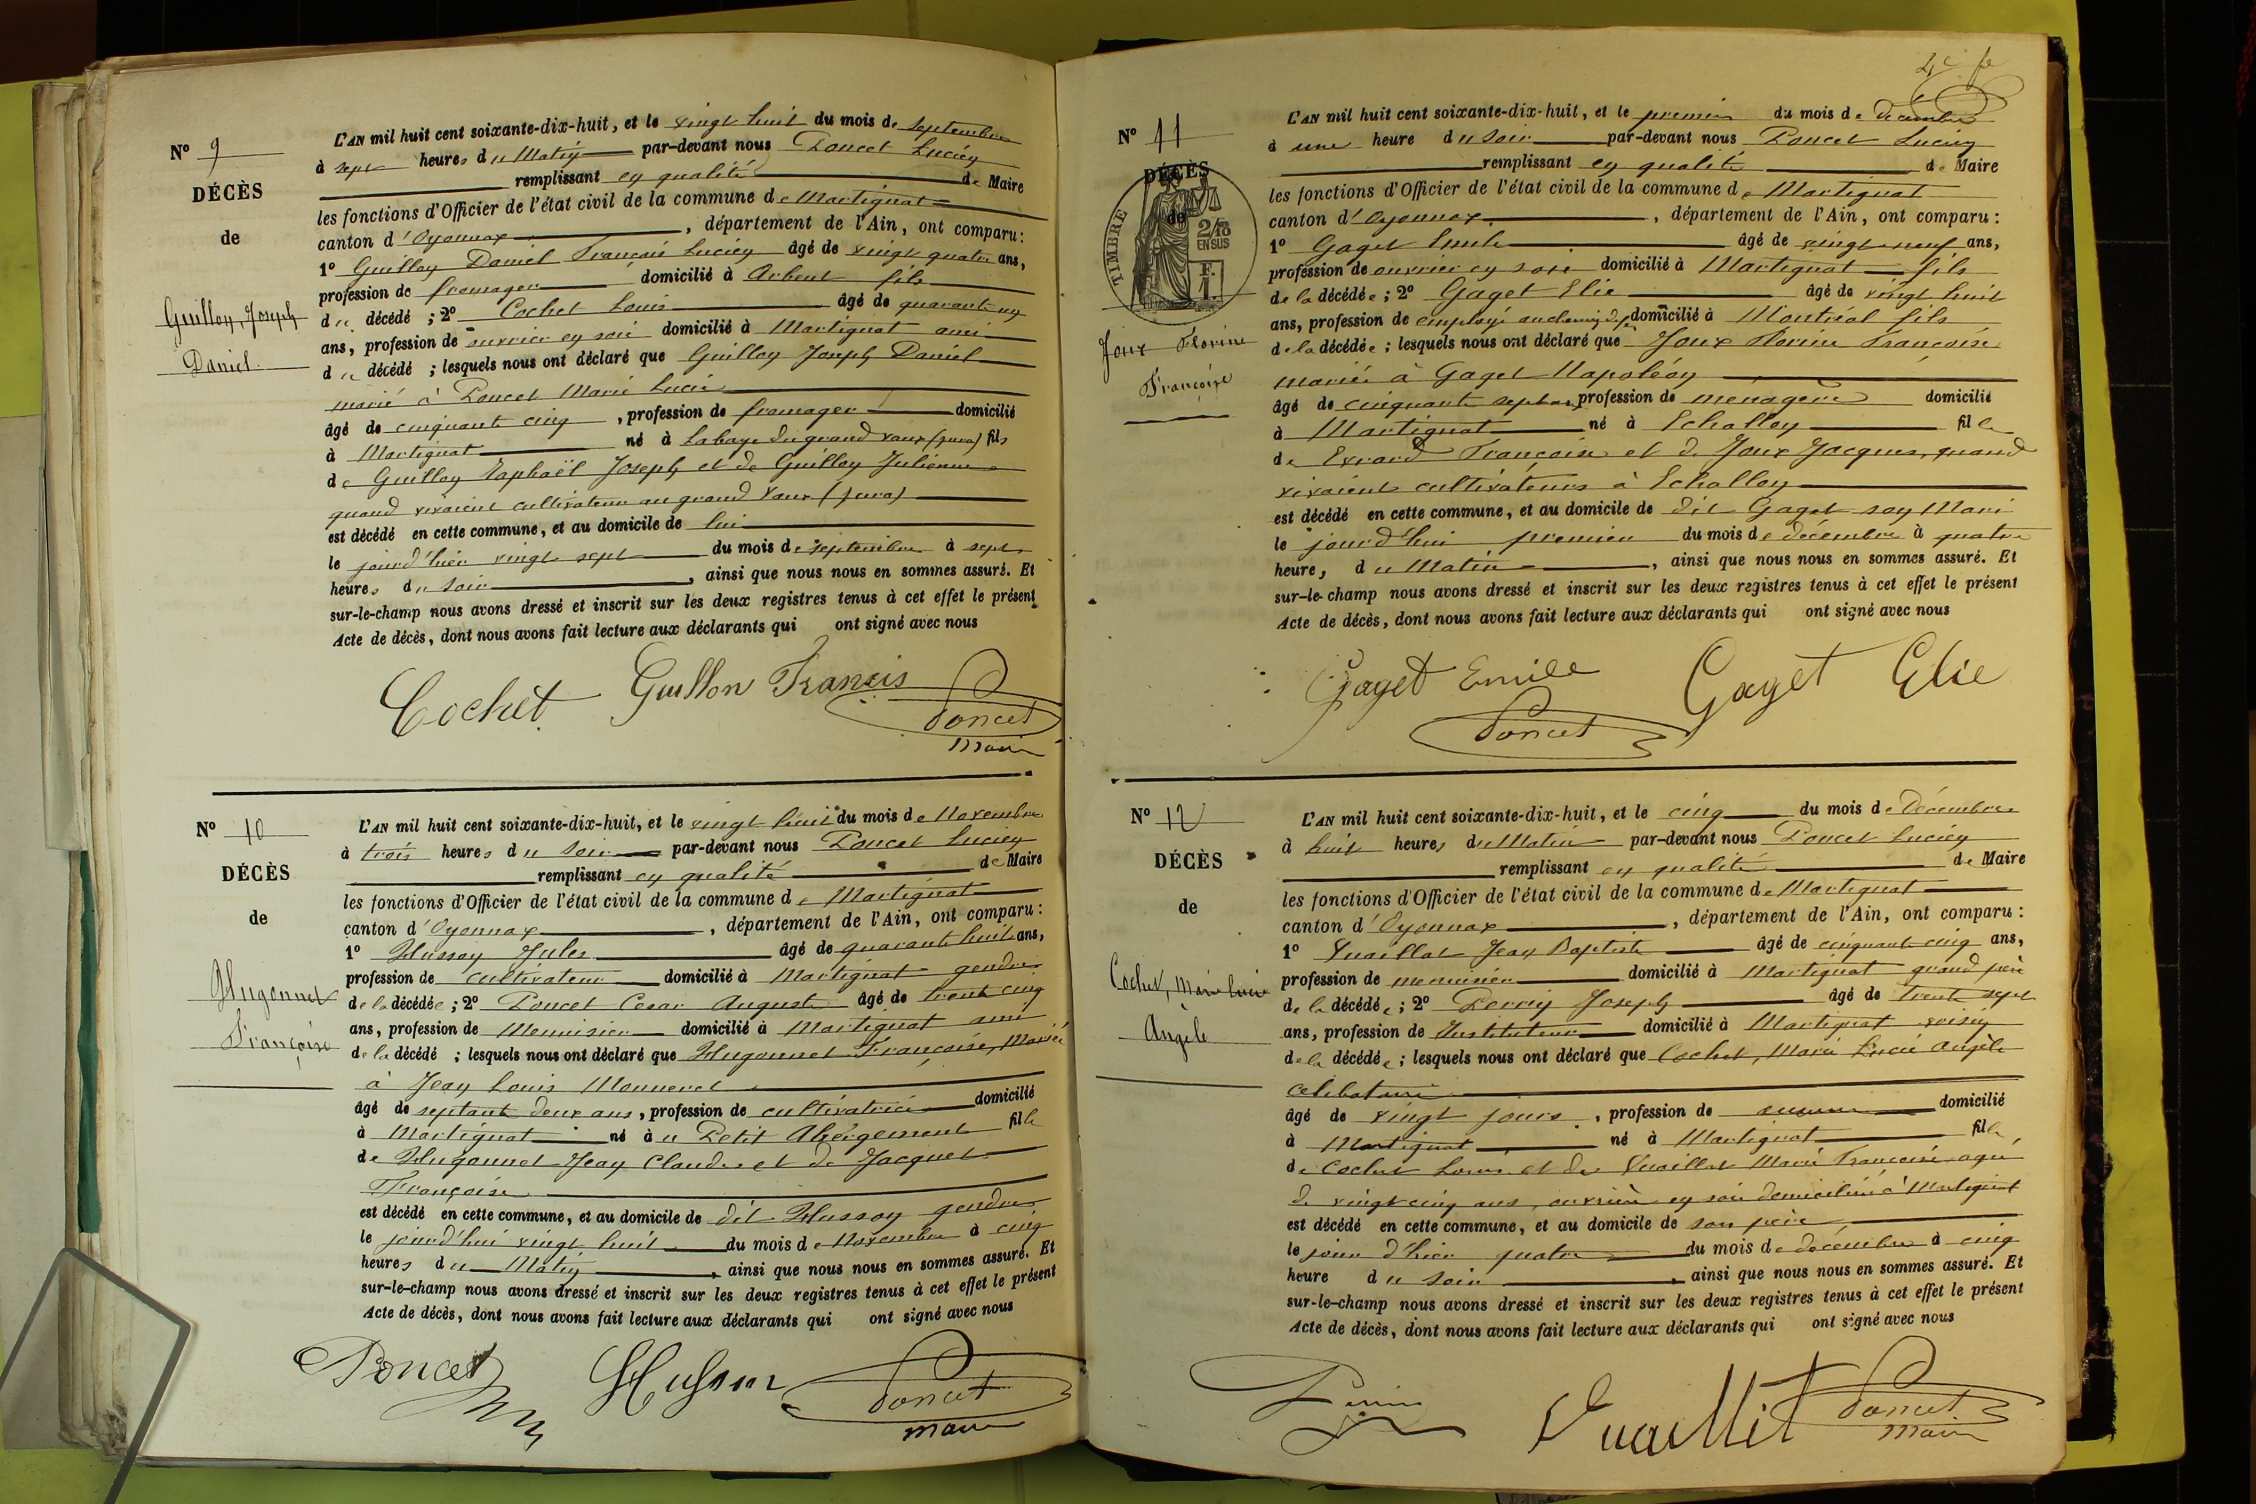 Nº 9
DÉCÈS
de
Guillon, Joseph
Daniel
L'AN mil huit cent soixante-dix-huit, et le vingt huit du mois de septembre
à sept heures du Matin par-devant nous Poncet Lucien
remplissant en qualité de Maire
les fonctions d'Officier de l'état civil de la commune de Martignat
canton d'Oyonnax, département de l'Ain, ont comparu:
1º Guillon Daniel François Lucien âgé de vingt quatre ans,
profession de fromager domicilié à Arbent fils
du décédé ; 2º Cochet Louis âgé de quarante un
ans, profession de ouvrier en soie domicilié à Martignat ami
du décédé ; lesquels nous ont déclaré que Guillon Joseph Daniel
marié à Poncet Marie Lucie
âgé de cinquante cinq, profession de fromager domicilié
à Martignat né à Labaye du grand vaux (jura) fils
de Guillon Raphaël Joseph et de Guillon Julienne
quand vivaient cultivateur au grand Vaux (jura)
est décédé en cette commune, et au domicile de lui
le jourd'hier vingt sept du mois de septembre à sept
heures du soir, ainsi que nous nous en sommes assuré. Et
sur-le-champ nous avons dressé et inscrit sur les deux registres tenus à cet effet le présent
Acte de décès, dont nous avons fait lecture aux déclarants qui ont signé avec nous
Cochet Guillon Francis
Poncet
Maire
Nº 10
DÉCÈS
de
Hugonnet
Françoise
L'AN mil huit cent soixante-dix-huit, et le vingt huit du mois de Novembre
à trois heures du soir par-devant nous Poncet Lucien
remplissant en qualité de Maire
les fonctions d'Officier de l'état civil de la commune de Martignat
canton d'Oyonnax, département de l'Ain, ont comparu:
1º Husson Jules âgé de quarante huit ans,
profession de cultivateur domicilié à Martignat gendre
de la décédée ; 2º Poncet Cesar Auguste âgé de trente cinq
ans, profession de Menuisier domicilié à Martignat ami
de la décédé ; lesquels nous ont déclaré que Hugonnet Françoise, Mariée
à Jean Louis Monneret
âgé de septante deux ans, profession de cultivatrice domicilié
à Martignat né à u Petit Abergement fille
de Hugonnet Jean Claude et de Jacquet
Françoise
est décédé en cette commune, et au domicile de dit Husson gendre
le jourd'hui vingt huit du mois de Novembre à cinq
heures du Matin, ainsi que nous nous en sommes assuré. Et
sur-le-champ nous avons dressé et inscrit sur les deux registres tenus à cet effet le présent
Acte de décès, dont nous avons fait lecture aux déclarants qui ont signé avec nous
Poncet Husson Poncet
maire
Nº 11
DÉCÈS
de
TIMBRE
2/10
EN SUS
Joux Florine
Françoise
L'AN mil huit cent soixante-dix-huit, et le premier du mois de Décembre
à une heure du soir par-devant nous Poncet Lucien
remplissant en qualité de Maire
les fonctions d'Officier de l'état civil de la commune de Martignat
canton d'Oyonnax, département de l'Ain, ont comparu:
1º Gaget Emile âgé de vingt neuf ans,
profession de ouvrier en soie domicilié à Martignat fils
de la décédée ; 2º Gaget Elie âgé de vingt huit
ans, profession de employé au chemin de fer domicilié à Montréal fils
de la décédée ; lesquels nous ont déclaré que Joux Florine Françoise
mariée à Gaget Napoléon
âgé de cinquante sept ans profession de ménagère domicilié
à Martignat né à Echallon fille
de Evrard Françoise et de Joux Jacques, quand
vivaient cultivateurs à Echallon
est décédé en cette commune, et au domicile de dit Gaget son Mari
le jourd'hui premier du mois de décembre à quatre
heure, du Matin, ainsi que nous nous en sommes assuré. Et
sur-le-champ nous avons dressé et inscrit sur les deux registres tenus à cet effet le présent
Acte de décès, dont nous avons fait lecture aux déclarants qui ont signé avec nous
Gaget Emile Gaget Elie
Poncet
Nº 12
DÉCÈS
de
Cochet, Marie Lucie
Angèle
L'AN mil huit cent soixante-dix-huit, et le cinq du mois de Décembre
à huit heures du Matin par-devant nous Poncet Lucien
remplissant en qualité de Maire
les fonctions d'Officier de l'état civil de la commune de Martignat
canton d'Oyonnax, département de l'Ain, ont comparu:
1º Vuaillat Jean Baptiste âgé de cinquante cinq ans,
profession de menuisier domicilié à Martignat grand père
de la décédée ; 2º Perrin Joseph âgé de trente sept
ans, profession de Instituteur domicilié à Martignat voisin
de la décédée ; lesquels nous ont déclaré que Cochet, Marie Lucie Angèle
célibataire
âgé de vingt jours, profession de aucune domicilié
à Martignat né à Martignat fille
de Cochet Louis et de Vuaillat Marie Françoise agée
de vingt cinq ans, ouvrière en soie domiciliée à Martignat
est décédé en cette commune, et au domicile de son père
le jour d'hier quatre du mois de décembre à cinq
heure du soir, ainsi que nous nous en sommes assuré. Et
sur-le-champ nous avons dressé et inscrit sur les deux registres tenus à cet effet le présent
Acte de décès, dont nous avons fait lecture aux déclarants qui ont signé avec nous
Perrin Vuaillat Poncet
Maire